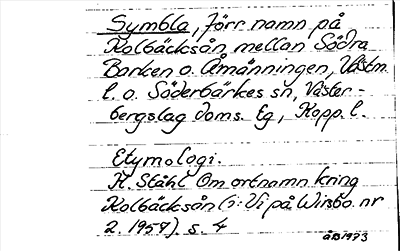 Symbla, förr namn på
Kolbäcksån mellan Södra
Barken o. Åmänningen, Västm.
l. o. Söderbärkes sn, Väster-
bergslag doms. tg, Kopp. l.
Etymologi.
H. Ståhl Om ortnamn kring
Kolbäcksån (i: Vi på Wirsbo. nr
2. 1957). s. 4
ÅB1973